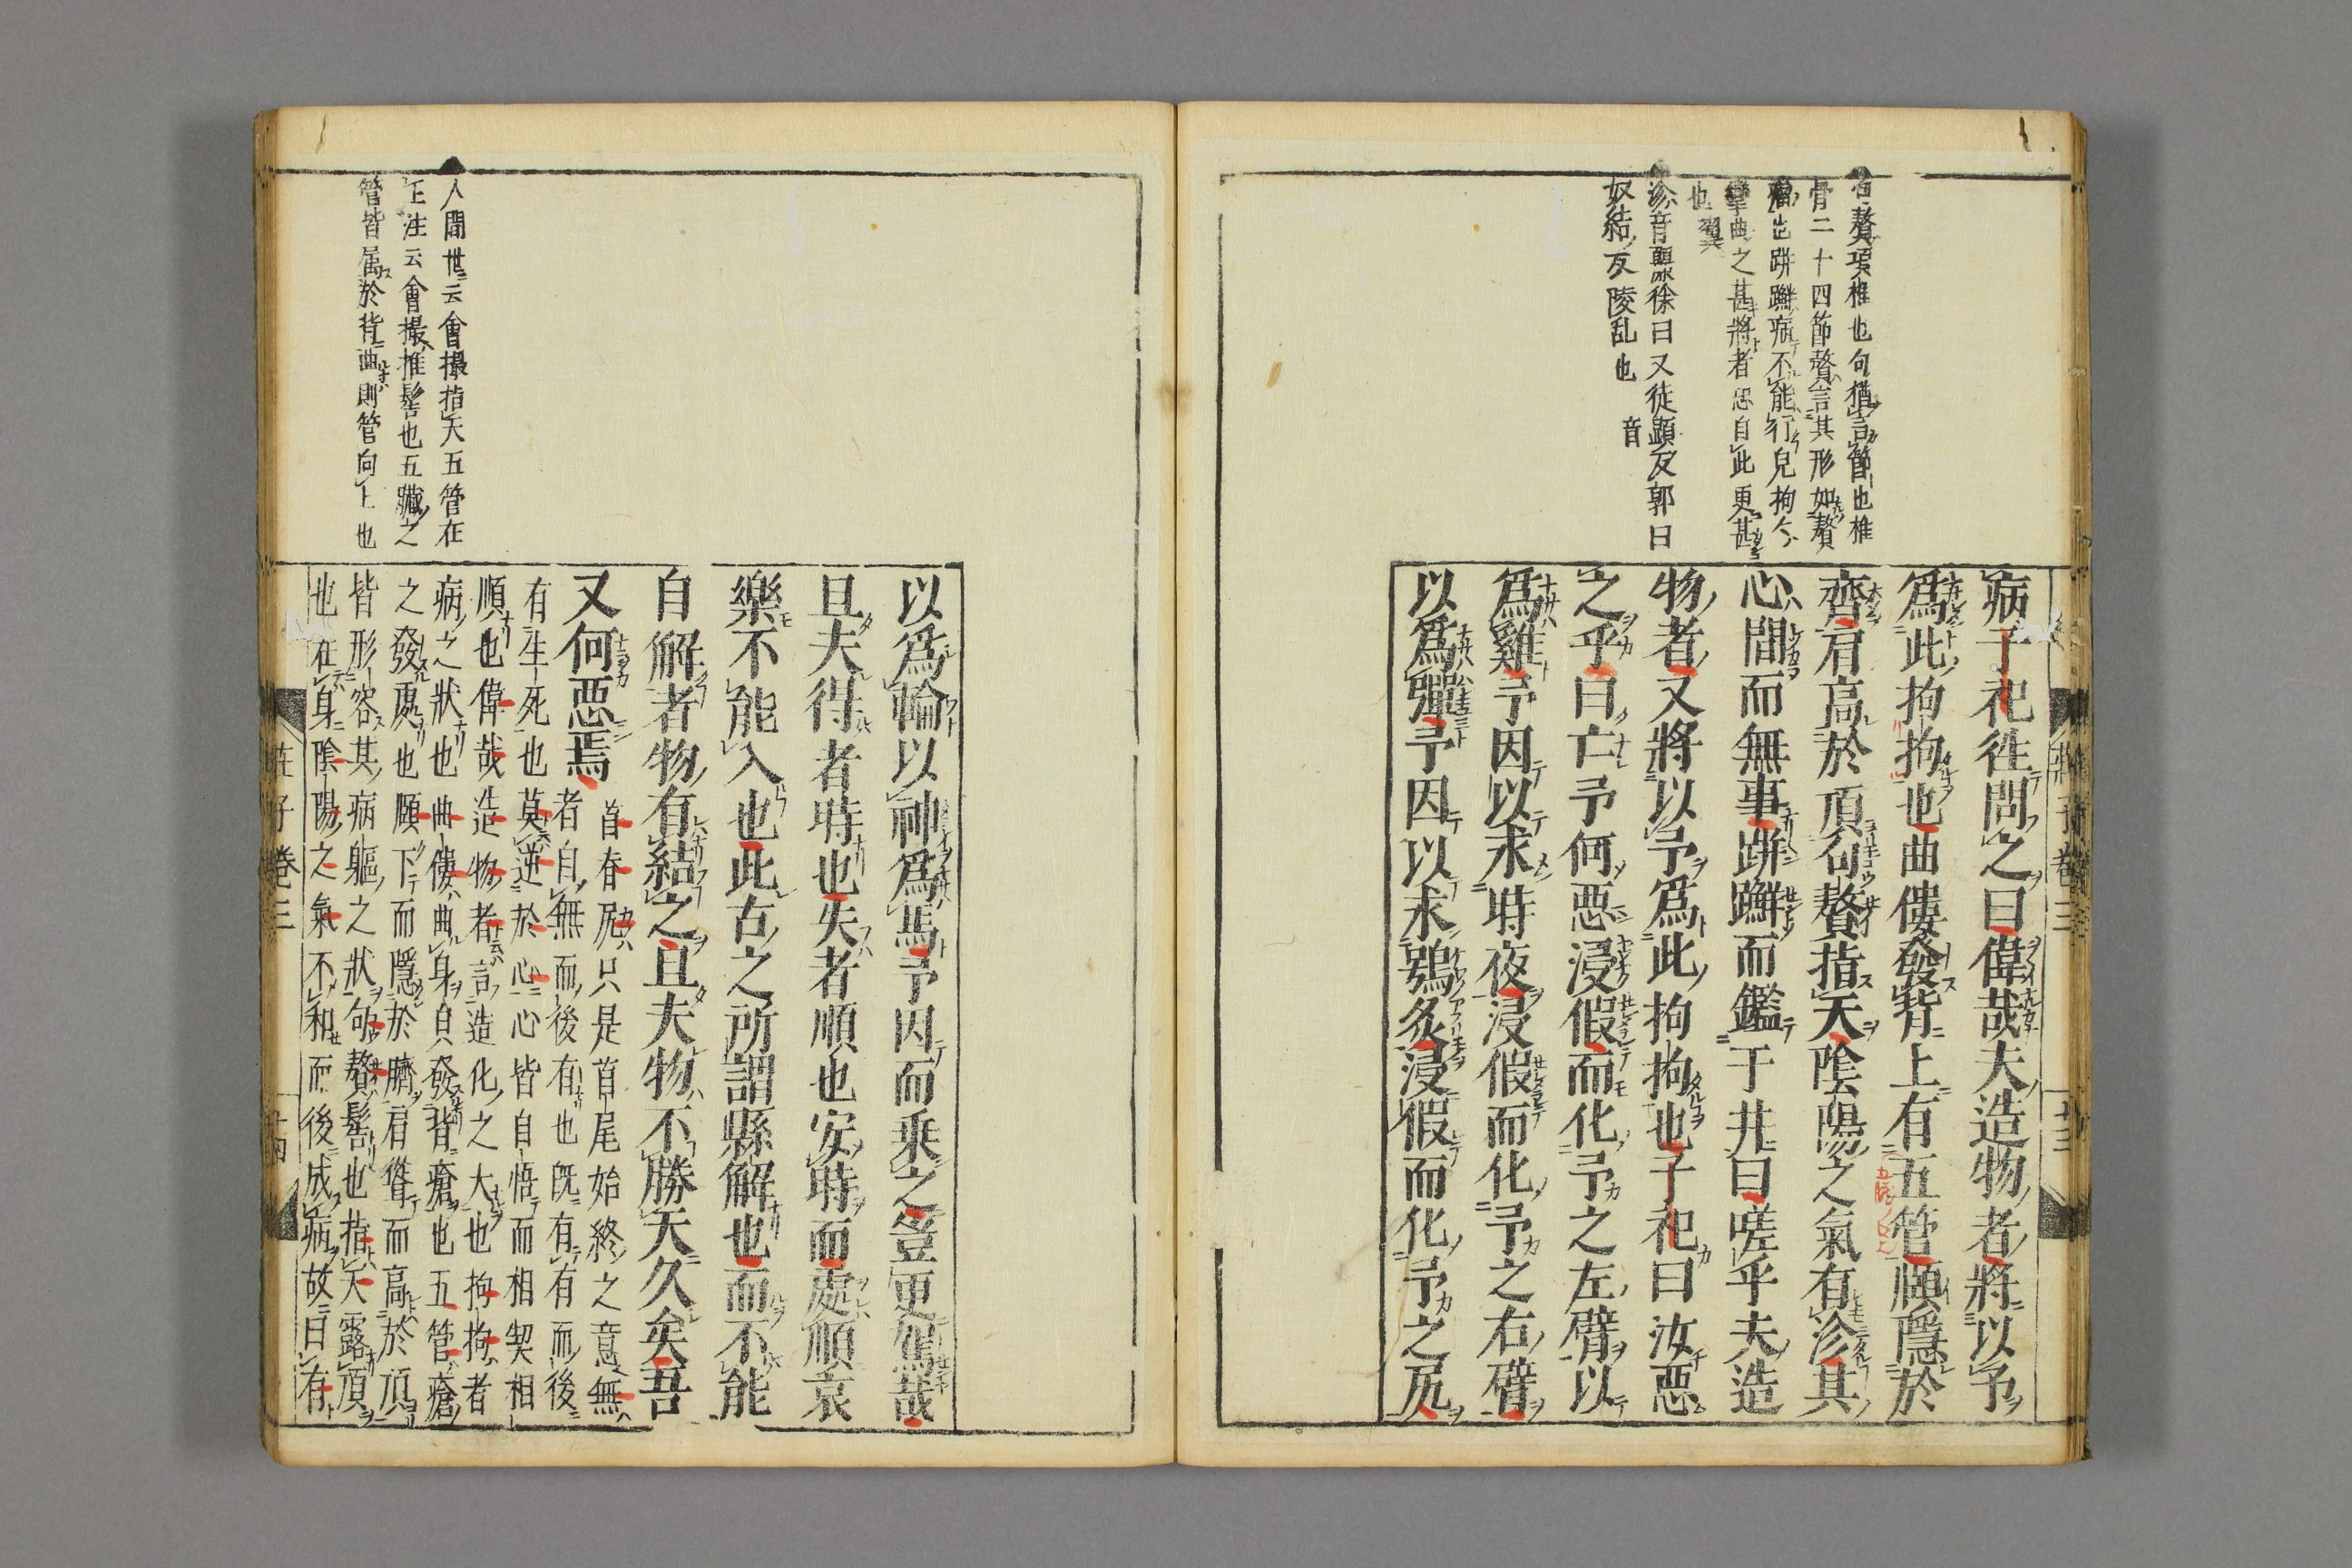 句贅項椎也句猶言節也椎
骨二十四節贅言其形如贅
瘤出跰𨇤病不能行皃拘〻
攣曲之甚將者恐自此更甚
也翼
沴音麗徐曰又徒顯反郭曰
奴結反陵乱也
音
病子祀徃問之曰偉哉夫造物者將以予
爲此拘拘也曲僂發背上有五管頤隱於
齊肩高於頂句贅指天陰陽之氣有沴其
心間而無事跰𨇤而鑑于井曰嗟乎夫造
物者又將以予爲此拘拘也子祀曰汝惡
之乎曰亡予何惡浸假而化予之左臂以
爲雞予因以求時夜浸假而化予之右臂
以爲彈予因以求鴞炙浸假而化予之尻
莊子巻三
十三
人間世云會撮指天五管在
上注云會撮椎髻也五臟之
管皆属於背曲則管向上也
以爲輪以神爲馬予因而乗之豈更駕哉
且夫得者時也失者順也安時而處順哀
樂不能入也此古之所謂縣解也而不能
自解者物有結之且夫物不勝天久矣吾
又何惡焉
首春尻只是首尾始終之意無
者自無而後有也既有有而後
有生死也莫逆於心心皆自悟而相契相
順也偉哉造物者言造化之大也拘拘者
病之狀也曲僂曲身貞發背瘡也五管瘡
之發處也頤下而隱於臍肩聳而高於頂
皆形容其病軀之狀句贅髻也指天露頂
也在身陰陽之氣不和而後成病故曰有
莊子巻三
十四